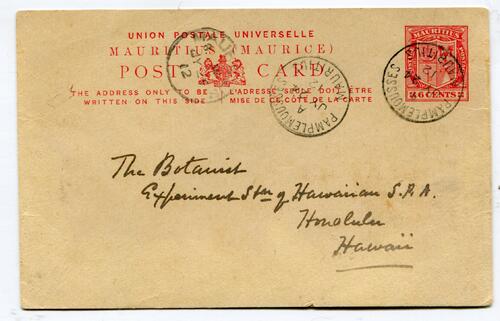 UNION POSTALE UNIVERSELLE
MAURITIUS (MAURICE)
POST CARD
THE ADDRESS ONLY TO BE WRITTEN ON THIS SIDE
L'ADRESSE SEULE DOIT ÊTRE MISE DE CE CÔTÉ DE LA CARTE
MAURITIUS
6 CENTS
PAMPLEMOUSSES
MAURITIUS
A
PAMPLEMOUSSES
MAURITIUS
12
The Botanist
Experiment Stn of Hawaiian S.P.A.
Honolulu
Hawaii